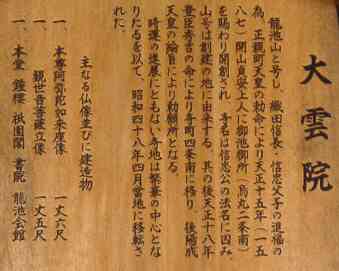 大雲院
龍池山と号し、織田信長、信忠父子の追福の
為、正親町天皇の勅命により天正十五年（一五
八七）開山貞安上人に御池御所（烏丸二条南）
を賜わり開創され、寺名は信忠公の法名に因み
山号は創建の地に由来する。其の後天正十八年
豊臣秀吉の命により寺町四条南に移り、後陽成
天皇の綸旨により勅願所となる。
時運の進展にともない寺地は繁華の中心とな
りたるを以て、昭和四十八年四月当地に移転さ
れた。
主なる仏像並びに建造物
一、本尊阿弥陀如来座像 一丈六尺
一、観世音菩薩立像 一丈五尺
一、本堂 鐘楼 祇園閣 書院 龍池会館